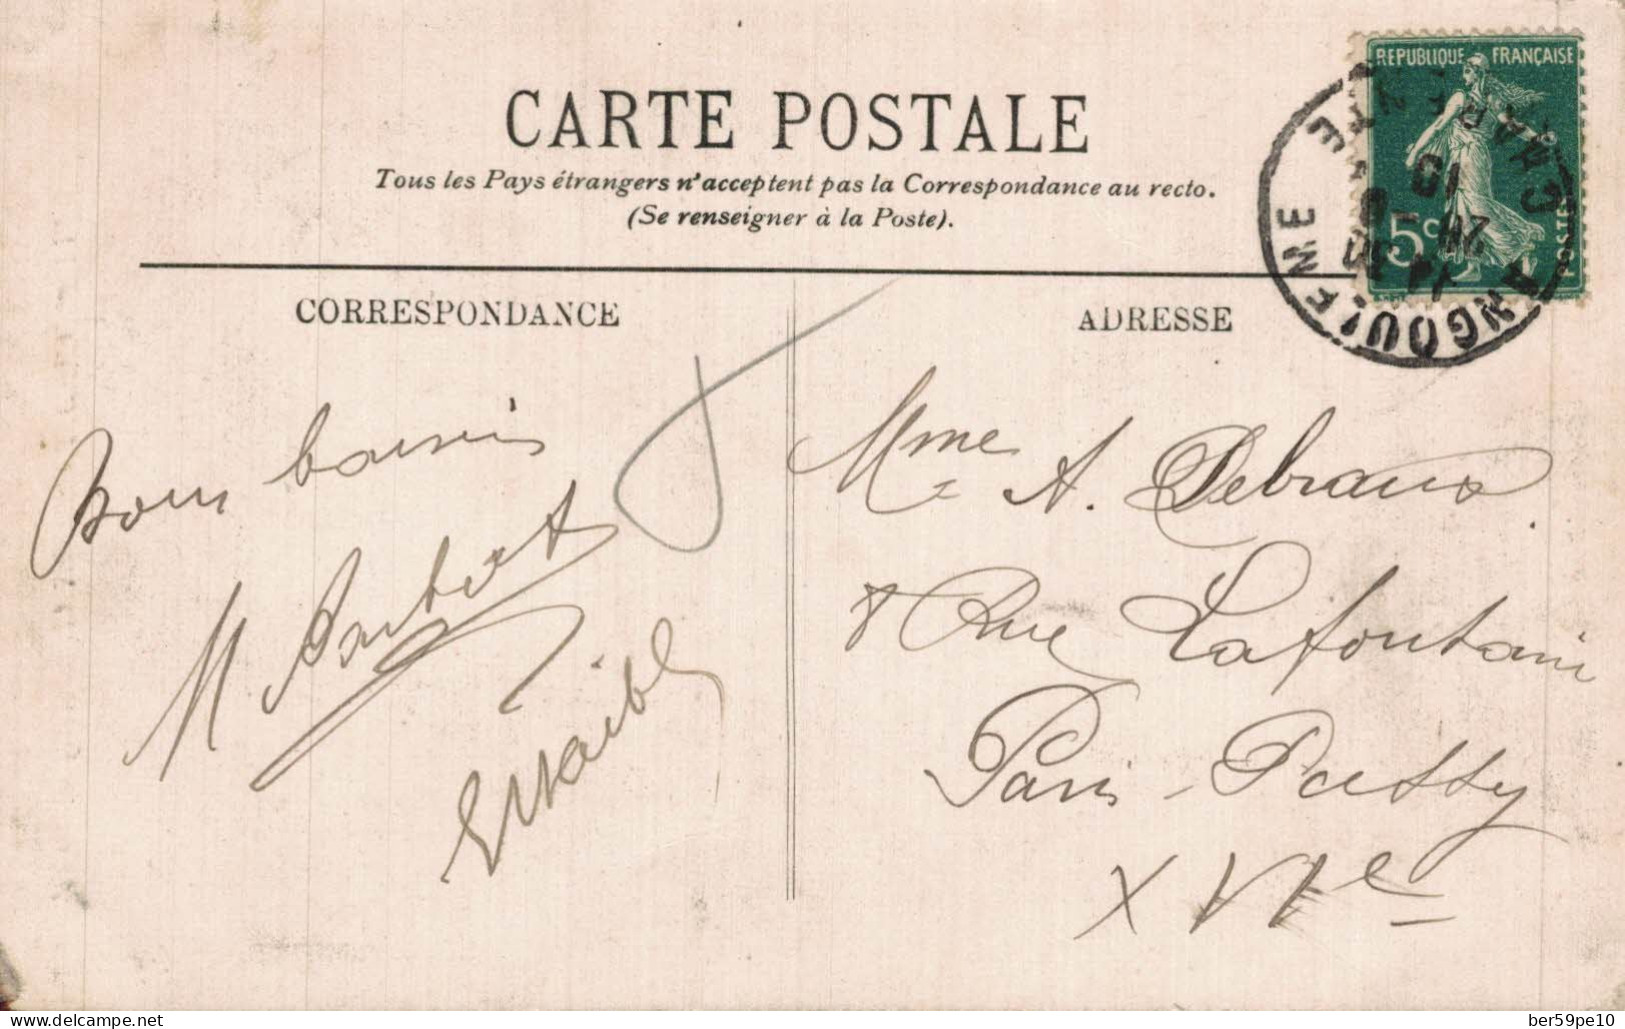 CARTE POSTALE
Tous les Pays étrangers n'acceptent pas la Correspondance au recto.
(Se renseigner à la Poste).
REPUBLIQUE FRANÇAISE
5c
POSTES
ANGOULEME
CHARENTE
CORRESPONDANCE
ADRESSE
Bons baisers
M
Mme A. Debraux
8 Rue Lafontaine
Paris - Passy
XVIe
delcampe.net
ber59pe10